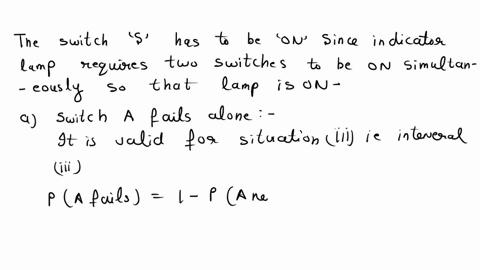 The switch 'S' has to be 'ON' since indicator
lamp requires two switches to be ON simultan-
-eously so that lamp is ON-
a) switch A fails alone :-
It is valid for situation (iii) ie interveral
(iii)
P(A fails) = 1 - P (A ne